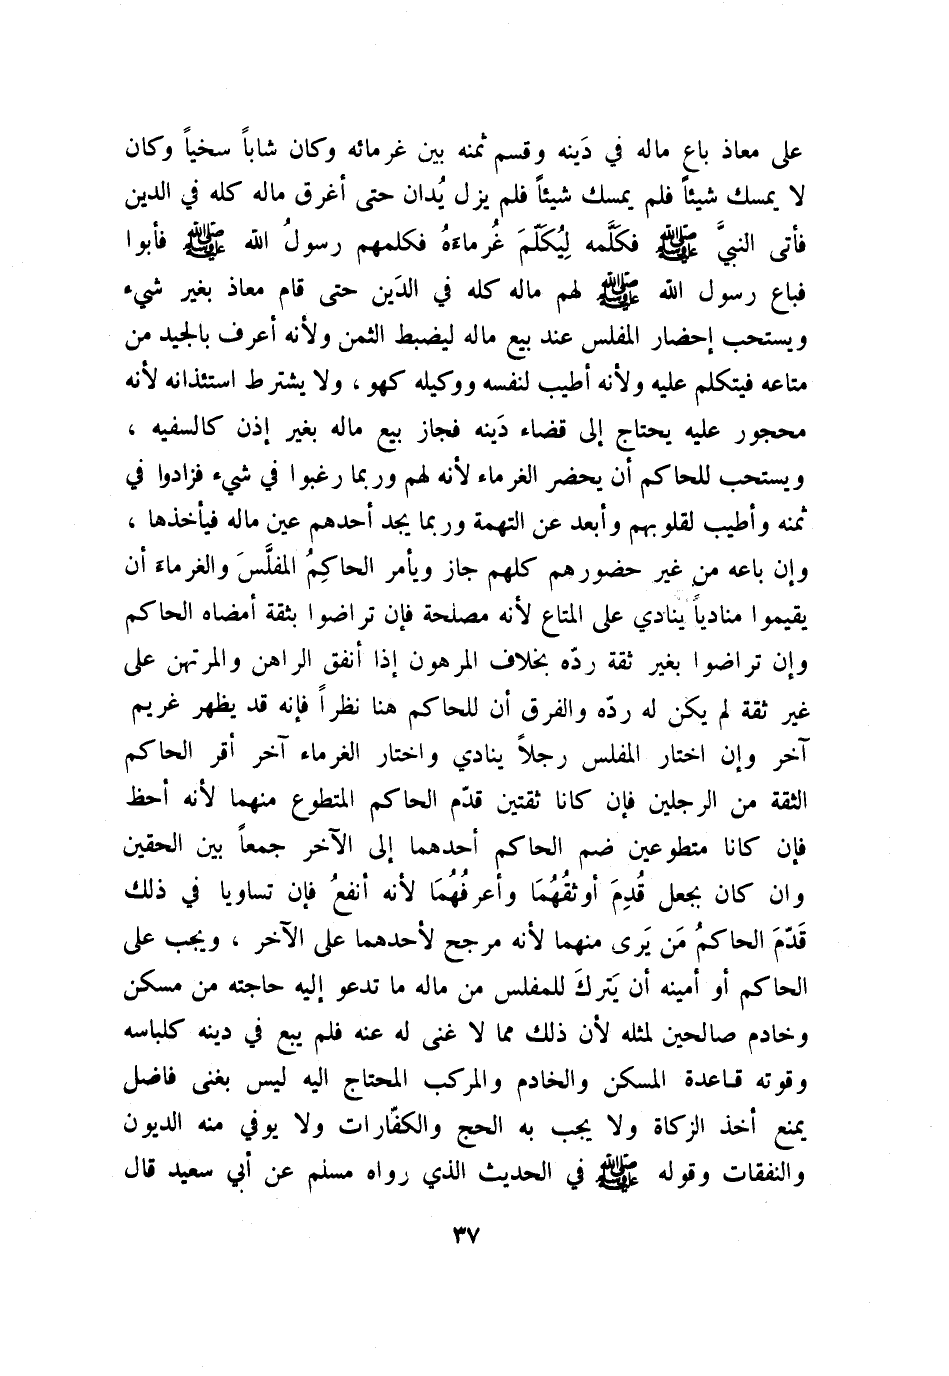 على معاذ باع ماله في دَينه وقسم ثمنه بين غرمائه وكان شاباً سخياً وكان
لا يمسك شيئاً فلم يمسك شيئاً فلم يزل يُدان حتى أغرق ماله كله في الدين
فأتى النبيَّ ﷺ فكلَّمه لِيُكَلّمَ غُرماءَهُ فكلمهم رسولُ الله ﷺ فأبوا
فباع رسول الله ﷺ لهم ماله كله في الدَين حتى قام معاذ بغير شيء
ويستحب إحضار المفلس عند بيع ماله ليضبط الثمن ولأنه أعرف بالجيد من
متاعه فيتكلم عليه ولأنه أطيب لنفسه ووكيله كهو ، ولا يشترط استئذانه لأنه
محجور عليه يحتاج إلى قضاء دَينه فجاز بيع ماله بغير إذن كالسفيه ،
ويستحب للحاكم أن يحضر الغرماء لأنه لهم وربما رغبوا في شيء فزادوا في
ثمنه وأطيب لقلوبهم وأبعد عن التهمة وربما يجد أحدهم عين ماله فيأخذها ،
وإن باعه من غير حضورهم كلهم جاز ويأمر الحاكِمُ المفلَّسَ والغرماءَ أن
يقيموا منادياً ينادي على المتاع لأنه مصلحة فإن تراضوا بثقة أمضاه الحاكم
وإن تراضوا بغير ثقة ردّه بخلاف المرهون إذا أنفق الراهن والمرتهن على
غير ثقة لم يكن له ردّه والفرق أن للحاكم هنا نظراً فإنه قد يظهر غريم
آخر وإن اختار المفلس رجلاً ينادي واختار الغرماء آخر أقر الحاكم
الثقة من الرجلين فإن كانا ثقتين قدّم الحاكم المتطوع منهما لأنه أحظ
فإن كانا متطوعين ضم الحاكم أحدهما إلى الآخر جمعاً بين الحقين
وان كان بجعل قُدِمَ أوثقُهُمَا وأعرفُهُمَا لأنه أنفعُ فإن تساويا في ذلك
قَدّمَ الحاكمُ مَن يَرى منهما لأنه مرجح لأحدهما على الآخر ، ويجب على
الحاكم أو أمينه أن يَتركَ للمفلس من ماله ما تدعو إليه حاجته من مسكن
وخادم صالحين لمثله لأن ذلك مما لا غنى له عنه فلم يبع في دينه كلباسه
وقوته قاعدة المسكن والخادم والمركب المحتاج اليه ليس بغنى فاضل
يمنع أخذ الزكاة ولا يجب به الحج والكفّارات ولا يوفي منه الديون
والنفقات وقوله ﷺ في الحديث الذي رواه مسلم عن أبي سعيد قال
٣٧